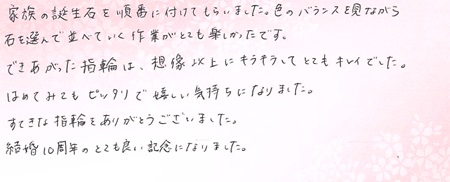 家族の誕生石を順番に付けてもらいました。色のバランスを見ながら
石を選んで並べていく作業がとても楽しかったです。
できあがった指輪は、想像以上にキラキラしてとてもキレイでした。
はめてみてもピッタリで嬉しい気持ちになりました。
すてきな指輪をありがとうございました。
結婚10周年のとても良い記念になりました。